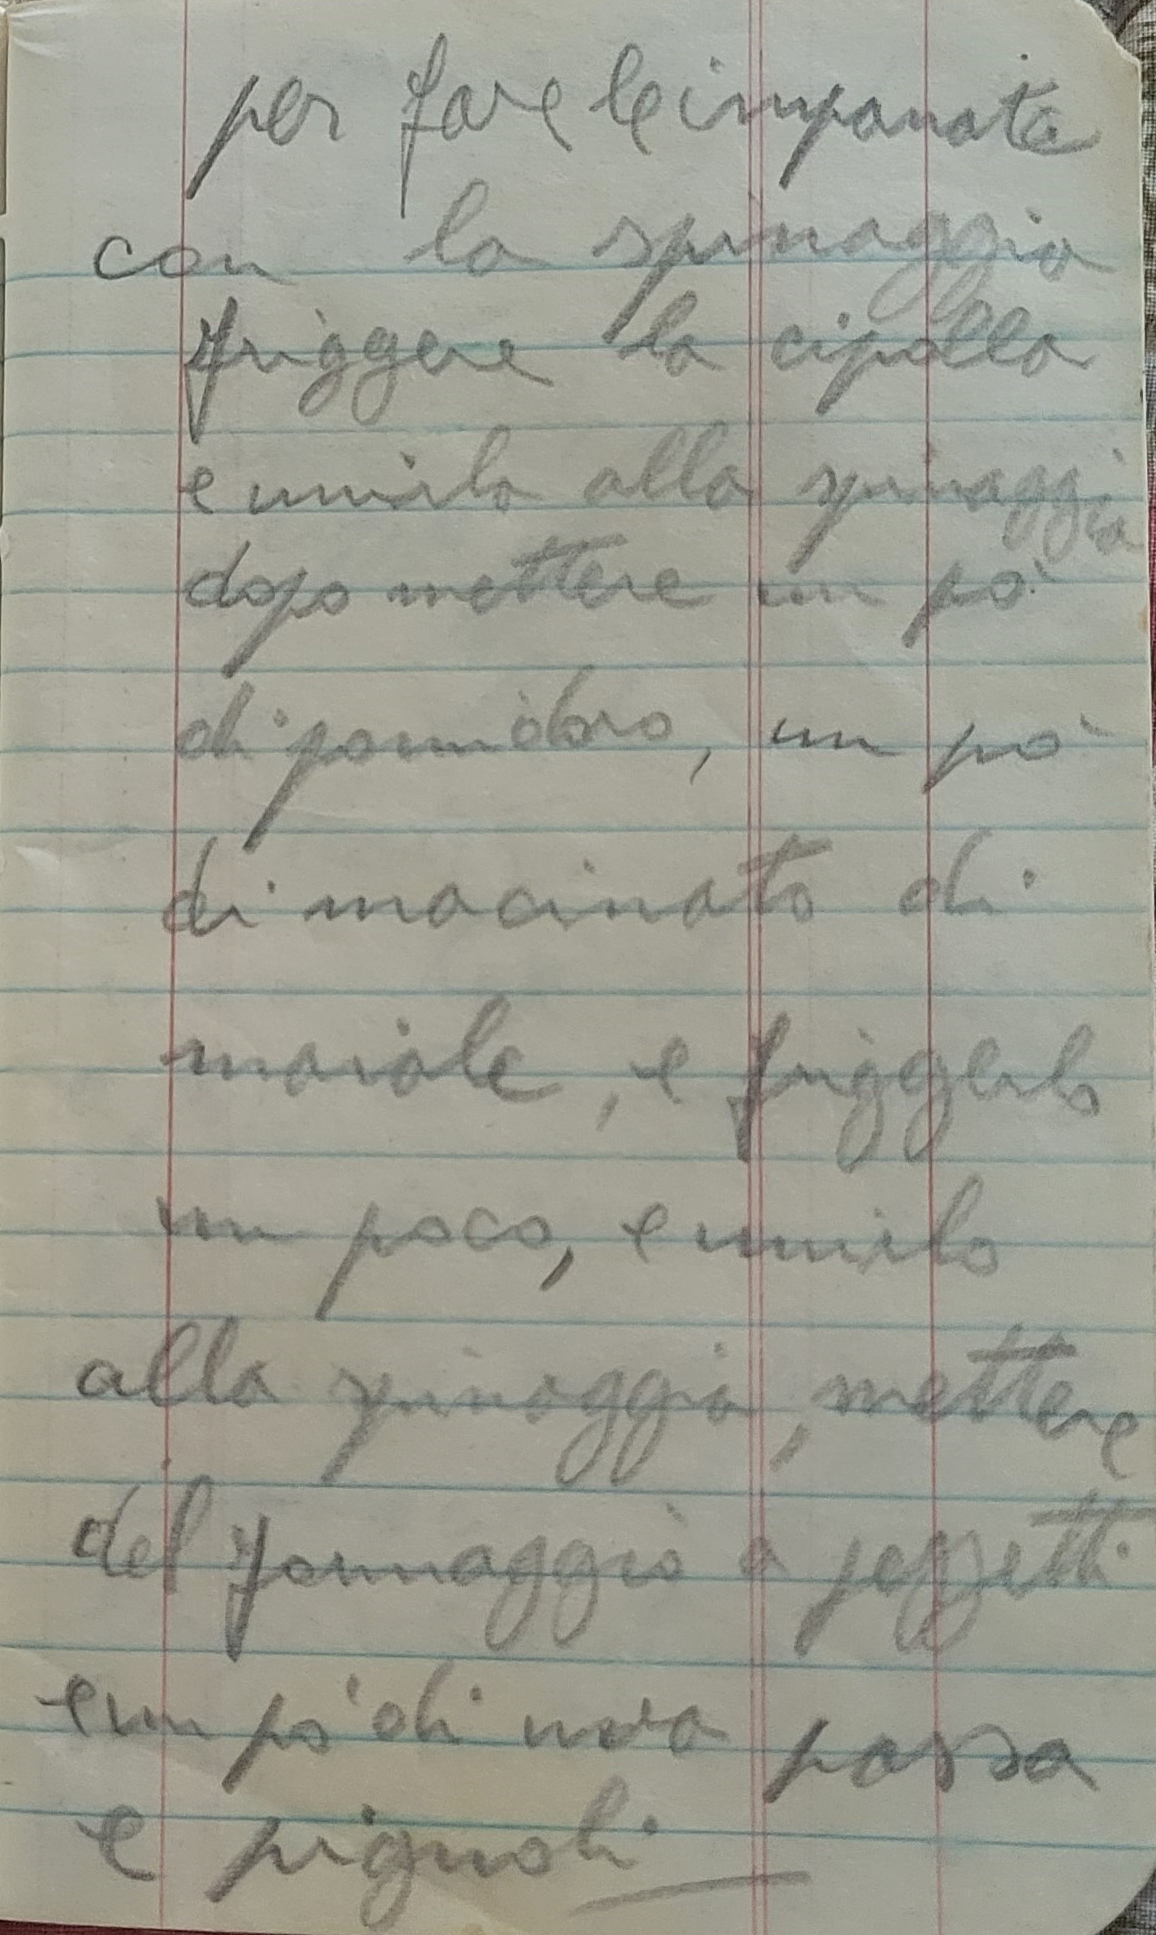 per fare le impanate
con la spinaggia
friggere la cipolla
e unirla alla spinaggia
dopo mettere un pò
di pomidoro, un pò
di macinato di
maiale, e friggerlo
un poco, e unirlo
alla spinaggia, mettere
del formaggio a pezzetti
e un pò di uva passa
e pignoli